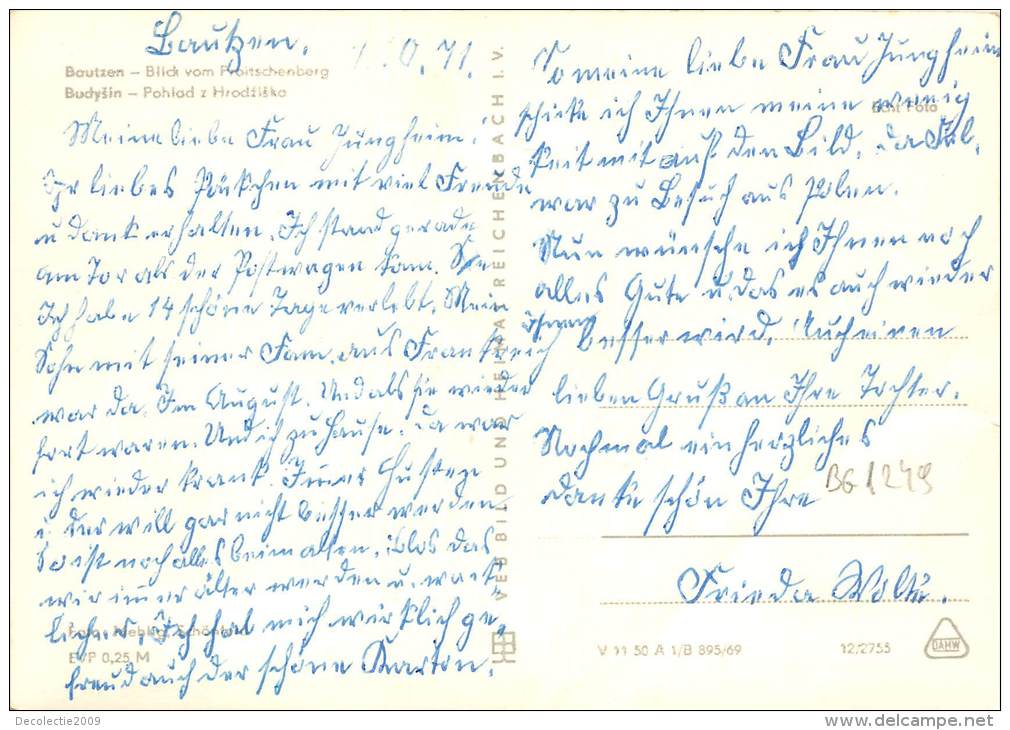 Bautzen, 71.
Bautzen – Blick vom Proitschenberg
Budyšin – Pohlad z Hrodźiška
Meine liebe Frau Jungheim!
Ihr liebes Päkchen mit viel Freude
u dank erhalten. Ich stand gerade
am Tor als der Postwagen kam.
Ich habe 14 schöne Tage verlebt. Mein
Sohn mit seiner Fam. aus Frankreich
war da. Im August. Und als sie wieder
fort waren. Und ich zu Hause. da war
ich wieder krank. Immer Husten
u. der will gar nicht besser werden
so ist noch alles beim alten, blos das
wir immer älter werden u.
Ich hab mich wirklich ge-
freud auch der schöne Karton.
Foto:
EVP 0,25 M
VEB BILD UND HEIMAT REICHENBACH I. V.
So meine liebe Frau Jungheim
schicke ich Ihnen meine wenig
Echt Foto
keit mit auf den Bild. da
war zu Besuch aus Polen.
Nun wünsche ich Ihnen noch
alles Gute u. das es auch wieder
Ihnen besser wird. Auch einen
lieben Gruß an Ihre Tochter.
Nochmal ein herzliches
danke schön Ihre
BG1249
Frieda
V 11 50 A 1/B 895/69 12/2755
DAHW
Decolectie2009
www.delcampe.net